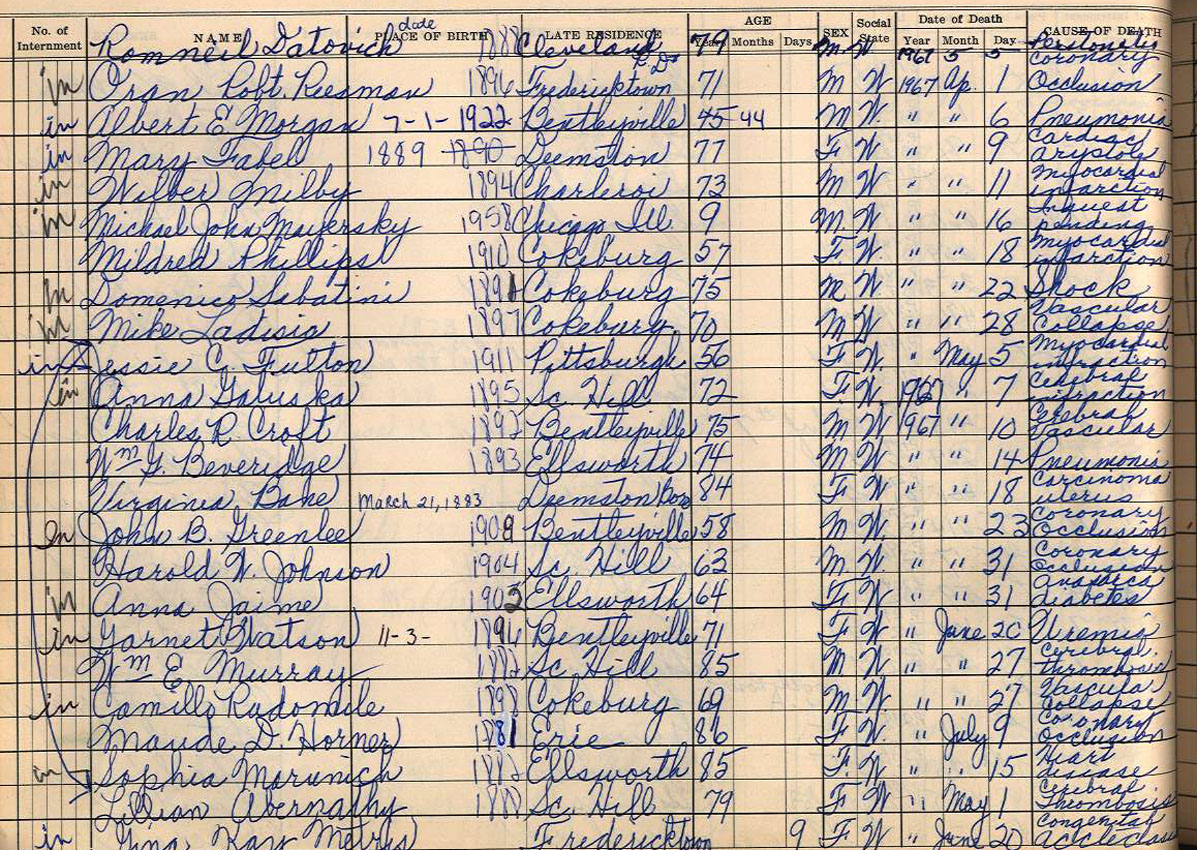 No. of Internment NAME date PLACE OF BIRTH LATE RESIDENCE AGE Years Months Days SEX Social State Date of Death Year Month Day CAUSE OF DEATH
Romneil Datovich 1888 Cleveland 79 M W 1967 5 5
in Oran Robt. Reesman 1896 Fredericktown 71 M W 1967 Ap. 1 Coronary Occlusion
in Albert E. Morgan 7-1-1922 Bentleyville 45 44 M W " " 6 Pneumonia
in Mary Fabel 1889 1890 Deemston 77 F W " " 9 Cardiac
in Wilber Milby 1894 Charleroi 73 M W " " 11 Myocardial infarction
in Michael John Mayersky 1958 Chicago Ill. 9 M. W. " " 16 Inquest pending
Mildred Phillips 1910 Cokeburg 57 F W. " " 18 Myocardial infarction
in Domenico Sabatini 1891 Cokeburg 75 M W. " " 22 Shock
in Mike Ladisic 1897 Cokeburg 70 M W. " " 28 Vascular Collapse
in Jessie G. Fulton 1911 Pittsburgh 56 F W. " May 5 Myocardial infraction
in Anna Galuska 1895 Sc. Hill 72 F. W. 1967 " 7 Cerebral infraction
Charles R. Croft 1892 Bentleyville 75 M W 1967 " 10 Cerebral Vascular
Wm. G. Beveridge 1893 Ellsworth 74 M W " " 14 Pneumonia
Virginia Bane March 21, 1883 Deemston Boro 84 F W " " 18 Carcinoma uterus
In John B. Greenlee 1908 Bentleyville 58 M W " " 23 Coronary Occlusion
Harold W. Johnson 1904 Sc. Hill 62 M W " " 31 Coronary Occlusion
in Anna Jaime 1903 Ellsworth 64 F W " " 31 Diabetes
in Garnet Watson 11-3- 1896 Bentleyville 71 F W " June 20 Uremia
Wm E. Murray 1882 Sc. Hill 85 M W " " 27 Cerebral thrombosis
in Camillo Radomile 1898 Cokeburg 69 M W " " 27 Vascular Collapse
Maude D. Horner 1881 Erie 86 F W " July 9 Coronary Occlusion
in Sophia Marunich 1882 Ellsworth 85 F. W " " 15 Heart disease
Lillian Abernathy 1888 Sc. Hill 79 F W " May 1 Cerebral Thrombosis
in Gina Kay Metris Fredericktown 9 F W " June 20 Congenital